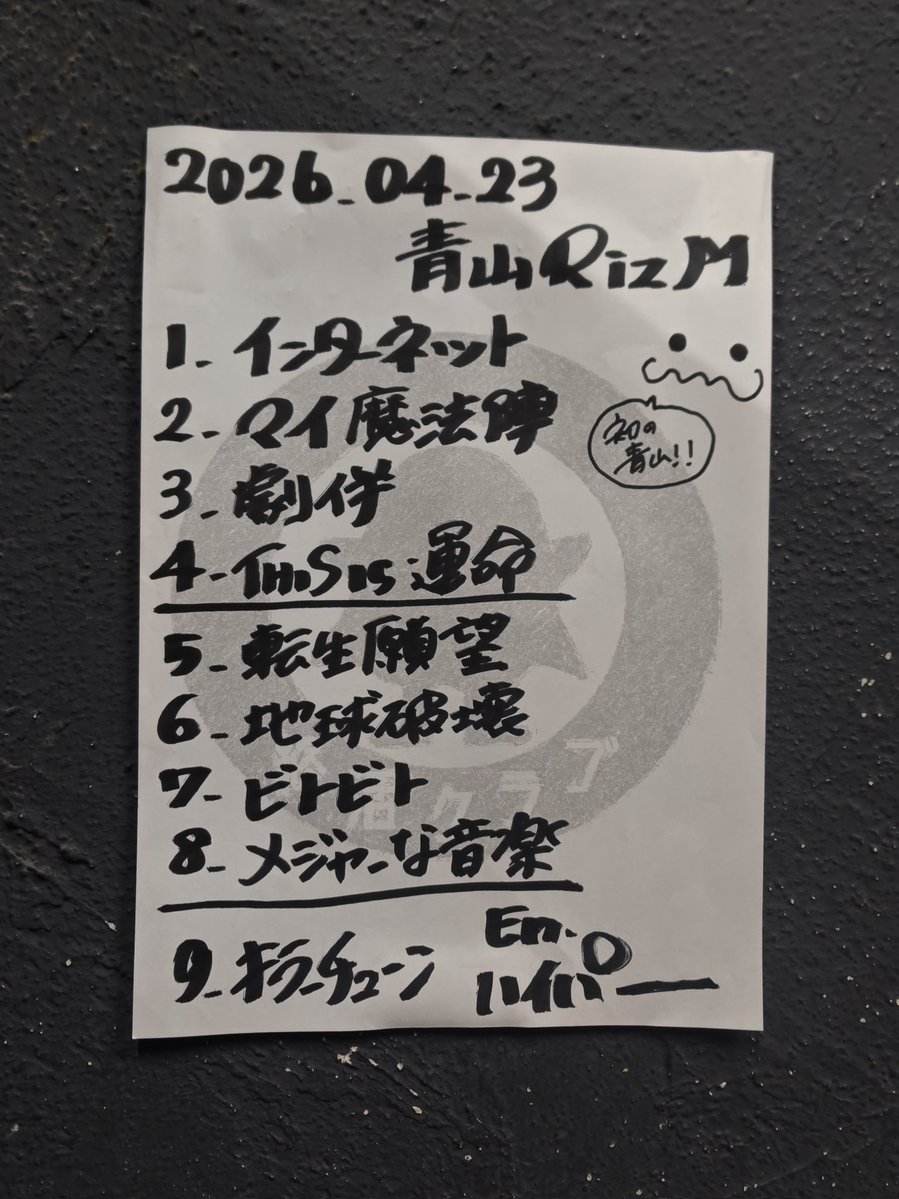 2026_04_23
青山RizM
1_インターネット
2_マイ魔法陣
初の
青山!!
3_劇伴
4_THiS is 運命
5_転生願望
6_地球破壊
7_ビトビト
8_メジャーな音楽
9_キラーチューン
En.
ハイパー
クラブ